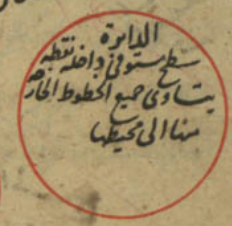 الدايرة
سطح مستوفى داخله نقطة
يتساوى جميع الخطوط الخارجة
منها الى محيطها